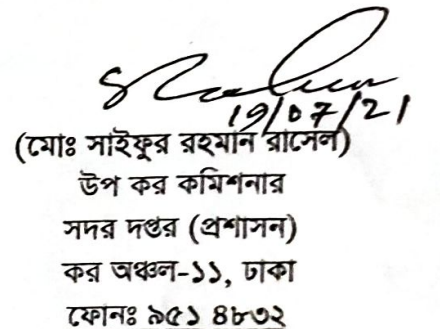 19/07/21
(মোঃ সাইফুর রহমান রাসেল)
উপ কর কমিশনার
সদর দপ্তর (প্রশাসন)
কর অঞ্চল-১১, ঢাকা
ফোনঃ ৯৫১ ৪৮৩২